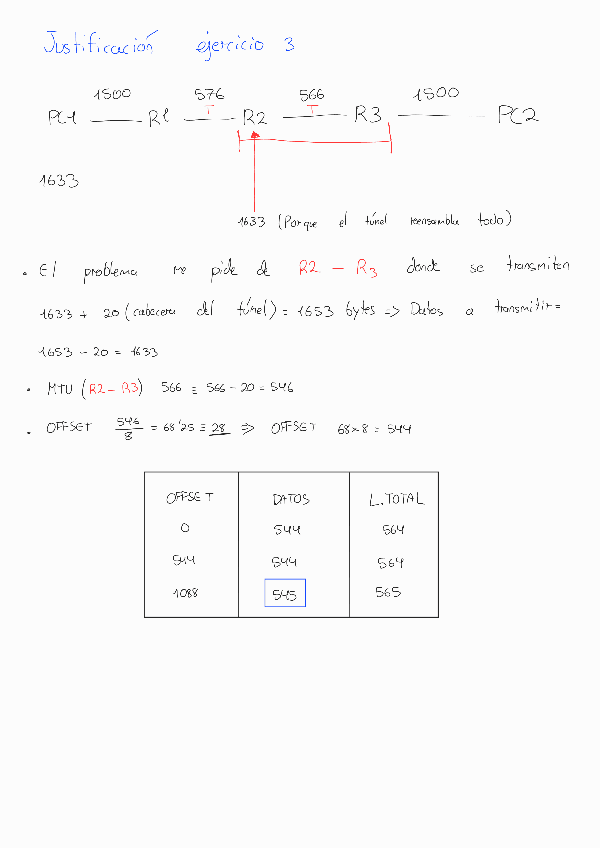 Justificación ejercicio 3
1500 576 566 1500
PC1 R1 T R2 T R3 PC2
1633
1633 (Porque el túnel reensambla todo)
• El problema me pide de R2 - R3 donde se transmiten
1633 + 20 (cabecera del túnel) = 1653 bytes => Datos a transmitir =
1653 - 20 = 1633
• MTU (R2 - R3) 566 = 566 - 20 = 546
• OFFSET 546/8 = 68'25 = 28 => OFFSET 68x8 = 544
OFFSET DATOS L.TOTAL
0 544 564
544 544 564
1088 545 565